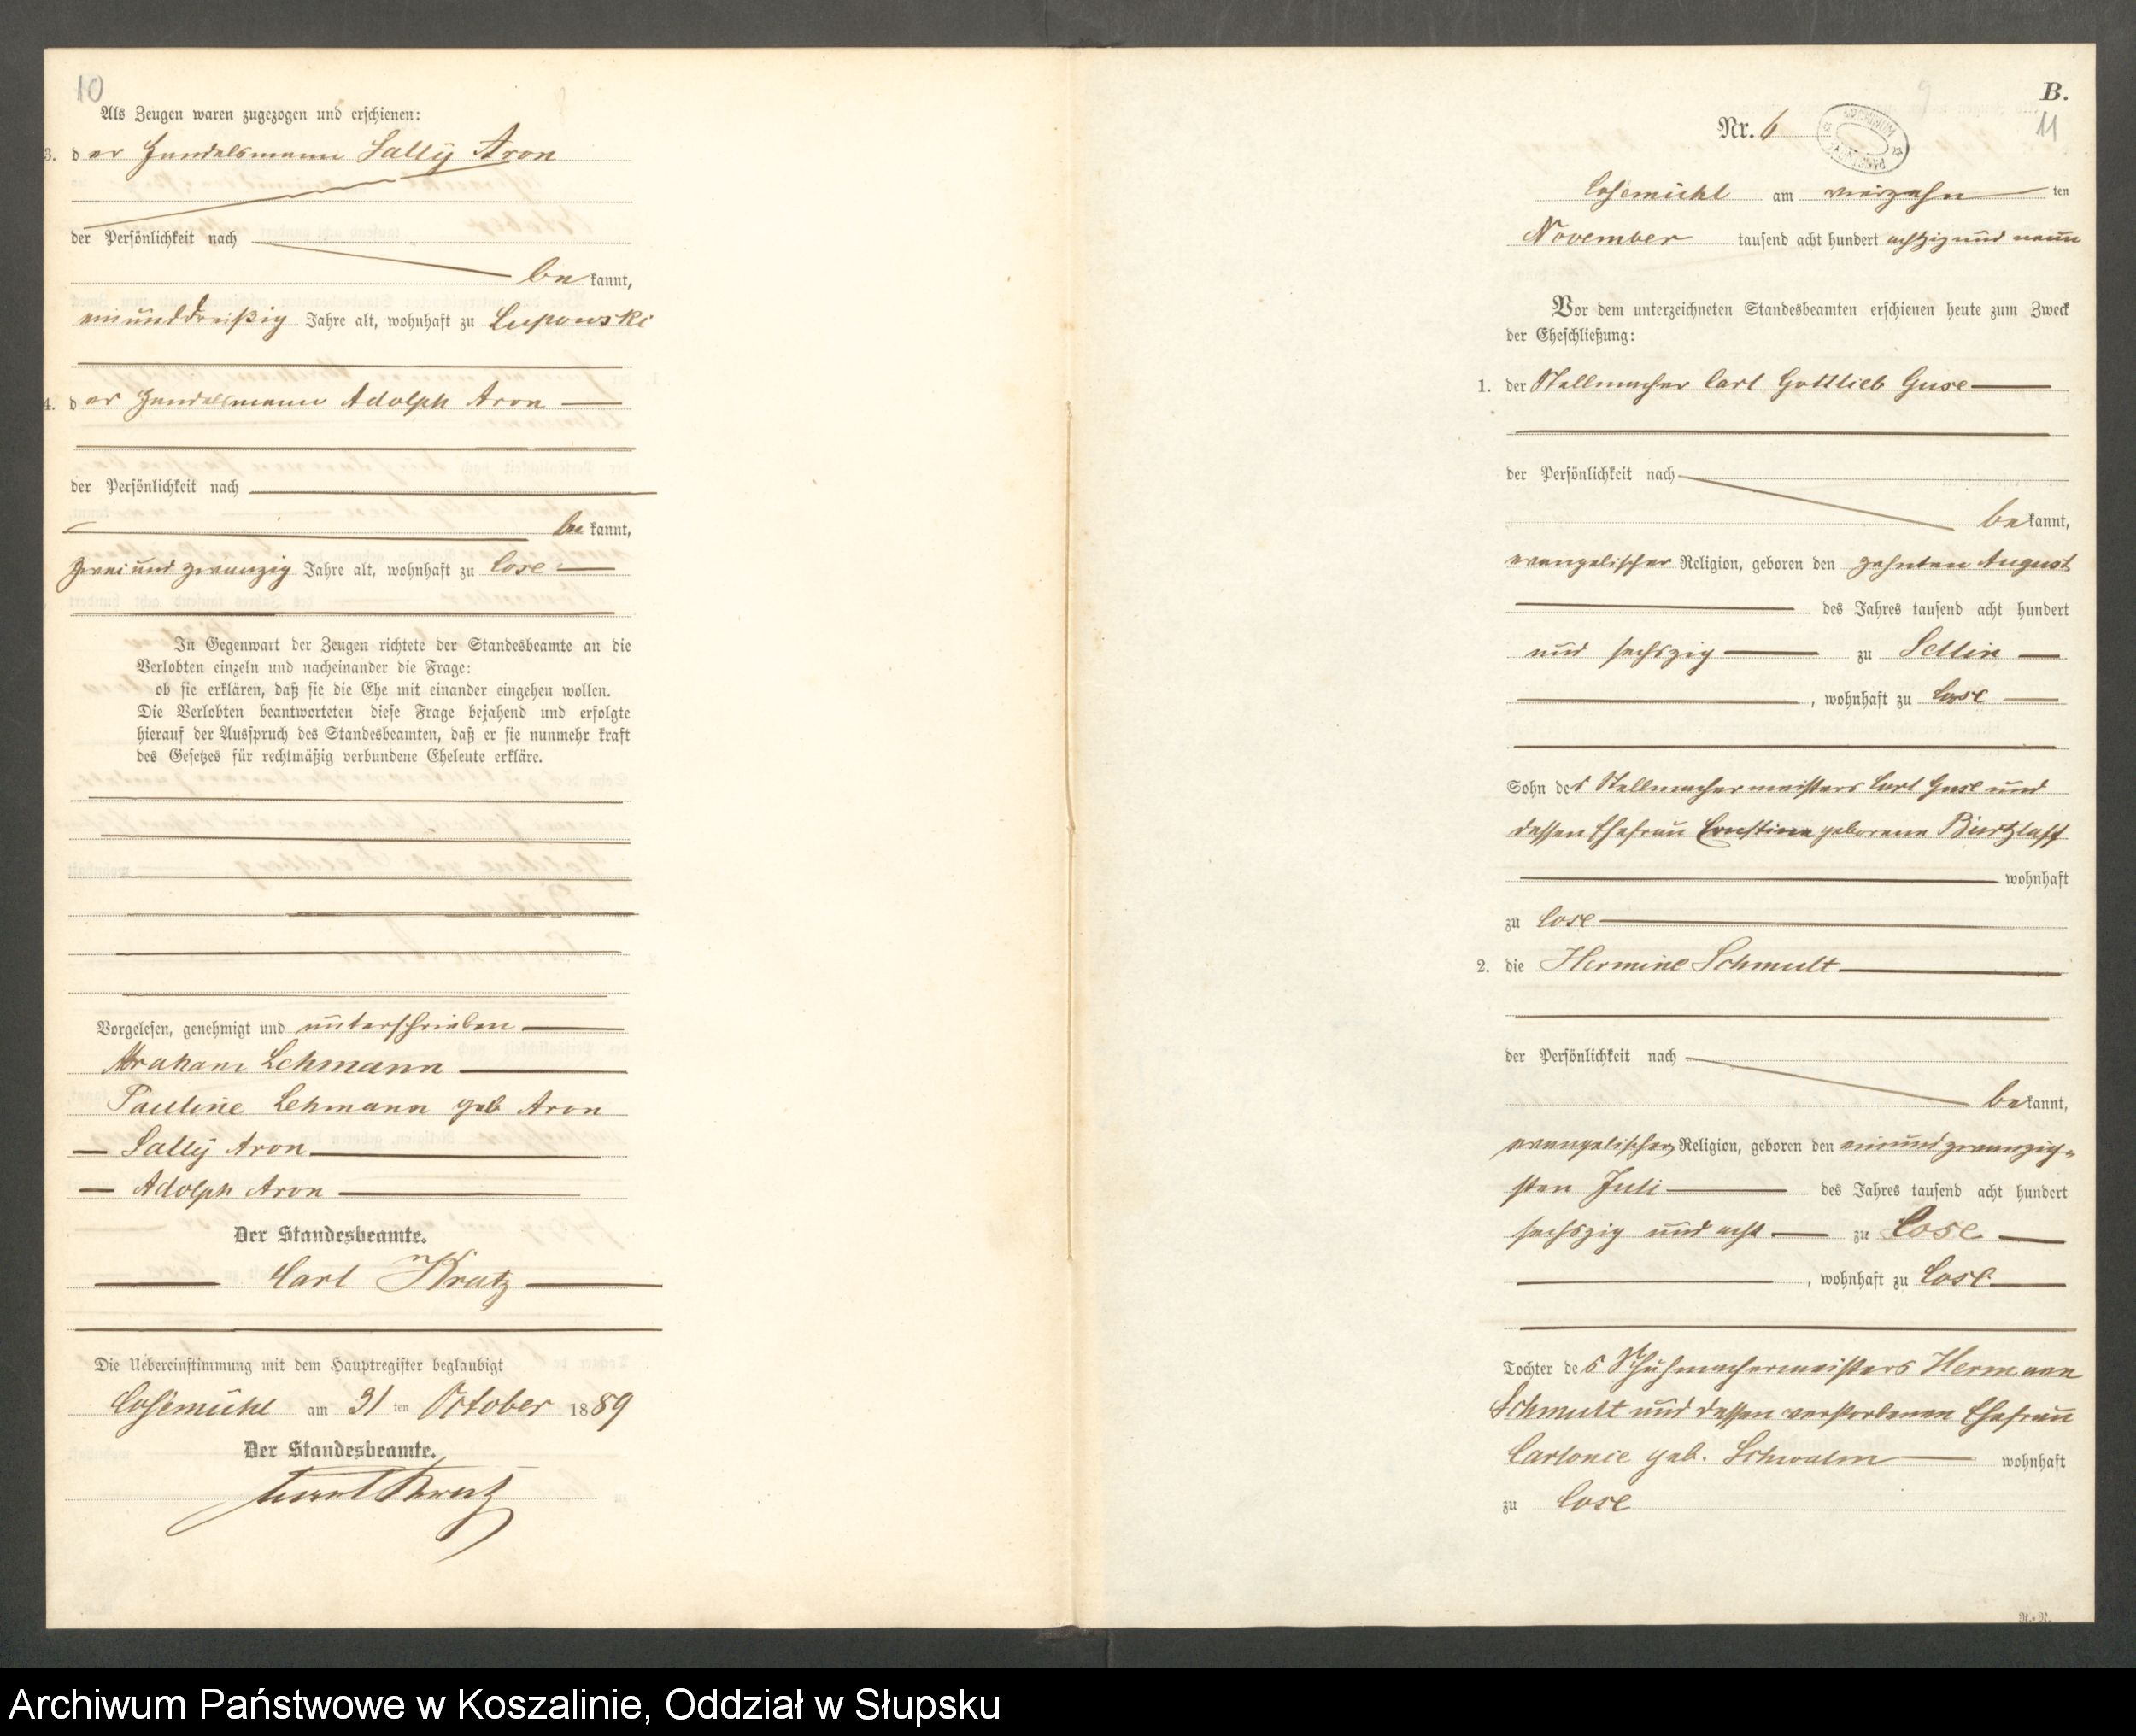 10
Als Zeugen waren zugezogen und erschienen:
3. der Handelsmann Sally Aron
der Persönlichkeit nach
bekannt,
einunddreißig Jahre alt, wohnhaft zu Lupowski
4. der Handelsmann Adolph Aron
der Persönlichkeit nach
bekannt,
zweiundzwanzig Jahre alt, wohnhaft zu Cose
In Gegenwart der Zeugen richtete der Standesbeamte an die
Verlobten einzeln und nacheinander die Frage:
ob sie erklären, daß sie die Ehe mit einander eingehen wollen.
Die Verlobten beantworteten diese Frage bejahend und erfolgte
hierauf der Ausspruch des Standesbeamten, daß er sie nunmehr kraft
des Gesetzes für rechtmäßig verbundene Eheleute erkläre.
Vorgelesen, genehmigt und unterschrieben
Abraham Lehmann
Pauline Lehmann geb Aron
Sally Aron
Adolph Aron
Der Standesbeamte.
Carl Kratz
Die Uebereinstimmung mit dem Hauptregister beglaubigt
Cosemühl am 31 ten October 1889
Der Standesbeamte.
Carl Kratz
B.
11
Nr. 6
ARCHIWUM PAŃSTWOWE
Cosemühl am vierzehn ten
November tausend acht hundert achtzig und neun
Vor dem unterzeichneten Standesbeamten erschienen heute zum Zweck
der Eheschließung:
1. der Stellmacher Carl Gottlieb Guse
der Persönlichkeit nach
bekannt,
evangelischer Religion, geboren den zehnten August
des Jahres tausend acht hundert
und sechszig zu Sellin
, wohnhaft zu Cose
Sohn des Stellmachermeisters Carl Guse und
dessen Ehefrau Ernstine geborene Bürtzlaff
wohnhaft
zu Cose
2. die Hermine Schmult
der Persönlichkeit nach
bekannt,
evangelischer Religion, geboren den einundzwanzig-
sten Juli des Jahres tausend acht hundert
sechszig und acht zu Cose
, wohnhaft zu Cose
Tochter des Schuhmachermeisters Hermann
Schmult und dessen verstorbenen Ehefrau
Carlonie geb. Schwalm wohnhaft
zu Cose
Archiwum Państwowe w Koszalinie, Oddział w Słupsku